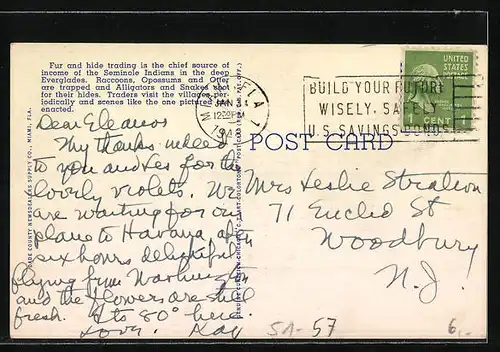 Fur and hide trading is the chief source of
income of the Seminole Indians in the deep
Everglades. Raccoons, Opossums and Otter
are trapped and Alligators and Snakes shot
for their hides. Traders visit the villages pe-
riodically and scenes like the one pictured is
enacted.
MIAMI, FLA.
JAN 3
12 PM
194
BUILD YOUR FUTURE
WISELY, SAFELY
U.S. SAVINGS BONDS
UNITED
STATES
POSTAGE
CENT 1
POST CARD
DADE COUNTY NEWSDEALERS SUPPLY CO., MIAMI, FLA.
Dear Eleanor
My thanks indeed
to you and Les for the
lovely violets. We
are waiting for our
plane to Havana after
six hours delightful
flying from Washington
and the flowers are still
fresh. Its 80° here.
Love. Kay
Mrs Leslie Stratton
71 Euclid St
Woodbury
N.J.
SA-57
6.-